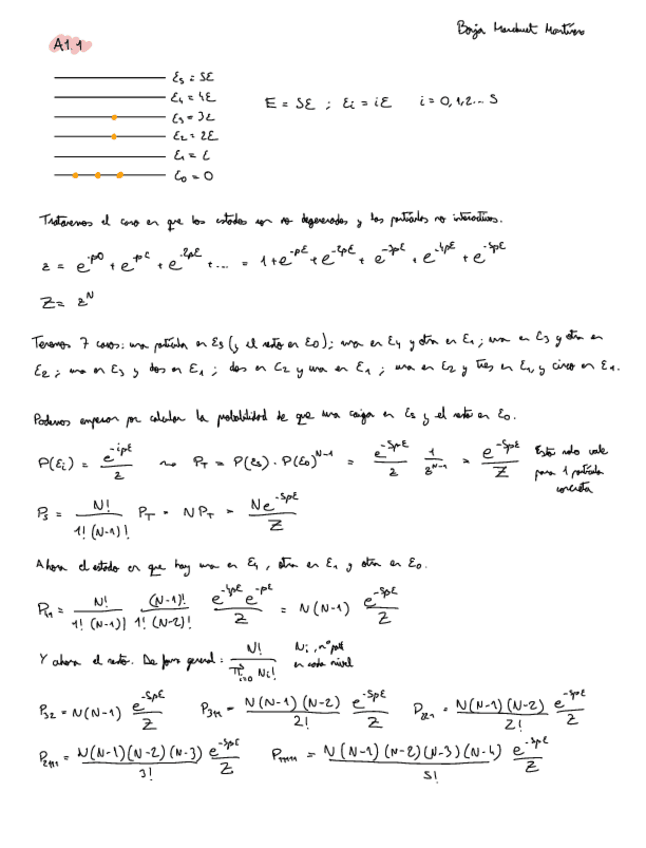 Borja Marchuet Martínez
A1.1
ε₅ = 5ε
ε₄ = 4ε
ε₃ = 3ε
ε₂ = 2ε
ε₁ = ε
ε₀ = 0
E = 5ε ; εᵢ = iε i = 0,1,2... 5
Trataremos el caso en que los estados son no degenerados y las partículas no interactivas.
z = e^{-β0} + e^{-βε} + e^{-2βε} + ... = 1 + e^{-βε} + e^{-2βε} + e^{-3βε} + e^{-4βε} + e^{-5βε}
Z = z^N
Tenemos 7 casos: una partícula en ε₅ (y el resto en ε₀); una en ε₄ y otra en ε₁; una en ε₃ y otra en
ε₂; una en ε₃ y dos en ε₁; dos en ε₂ y una en ε₁; una en ε₂ y tres en ε₁, y cinco en ε₁.
Podemos empezar por calcular la probabilidad de que una caiga en ε₅ y el resto en ε₀.
P(εᵢ) = e^{-iβε}/z ⇝ P_T = P(ε₅) · P(ε₀)^{N-1} = e^{-5βε}/z 1/z^{N-1} = e^{-5βε}/Z Esto solo vale
para 1 partícula
concreta
P₅ = N!/(1!(N-1)!) P_T = N P_T = N e^{-5βε}/Z
Ahora el estado en que hay una en ε₄, otra en ε₁ y otra en ε₀.
P₄₁ = N!/(1!(N-1)!) (N-1)!/(1!(N-2)!) e^{-4βε} e^{-βε}/Z = N(N-1) e^{-5βε}/Z
Y ahora el resto. De forma general: N!/(π⁵ᵢ₌₀ Nᵢ!) Nᵢ, nº part
en cada nivel
P₃₂ = N(N-1) e^{-5βε}/Z P₃₁₁ = N(N-1)(N-2)/2! e^{-5βε}/Z P₂₂₁ = N(N-1)(N-2)/2! e^{-5βε}/Z
P₂₁₁₁ = N(N-1)(N-2)(N-3)/3! e^{-5βε}/Z P₁₁₁₁₁ = N(N-1)(N-2)(N-3)(N-4)/5! e^{-5βε}/Z